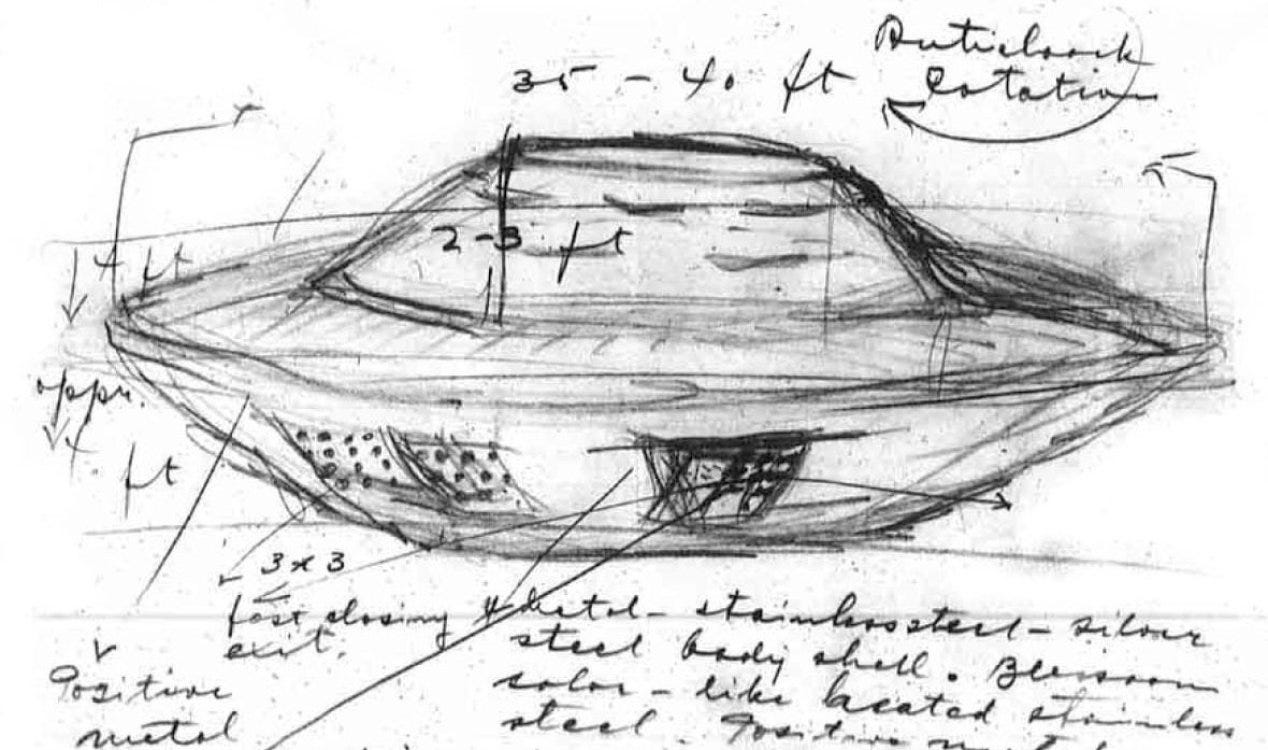 Anticlock
35 - 40 ft
Rotation
2-3 ft
4 ft
appr.
4. ft
3 x 3
fast closing
exit.
stainless steel - silver
steel body shell.
color - like heated stainless
steel. Positive
Positive
metal